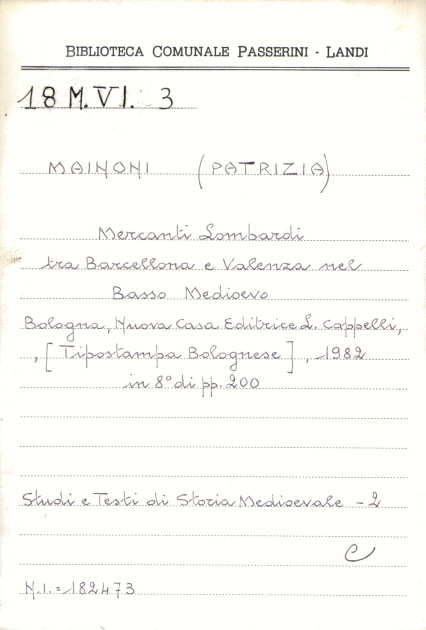 BIBLIOTECA COMUNALE PASSERINI - LANDI
18 M.VI. 3
MAINONI (PATRIZIA)
Mercanti Lombardi
tra Barcellona e Valenza nel
Basso Medioevo
Bologna, Nuova Casa Editrice L. Cappelli,
, [Tipostampa Bolognese], 1982
in 8° di pp. 200
Studi e Testi di Storia Medioevale - 2
C
N.I. = 182473